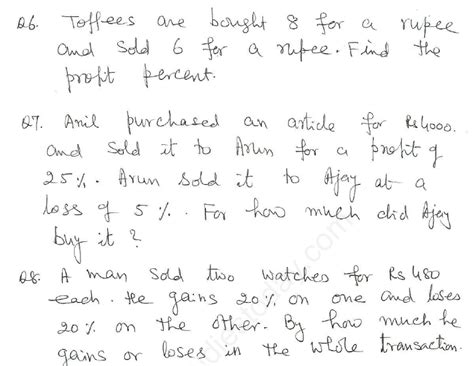 Q6. Toffees are bought 8 for a rupee
and sold 6 for a rupee. Find the
profit percent.
Q7. Anil purchased an article for Rs 4000.
and sold it to Arun for a profit of
25%. Arun sold it to Ajay at a
loss of 5%. For how much did Ajay
buy it ?
Q8. A man sold two watches for Rs 480
each. He gains 20% on one and loses
20% on the other. By how much he
gains or loses in the whole transaction.